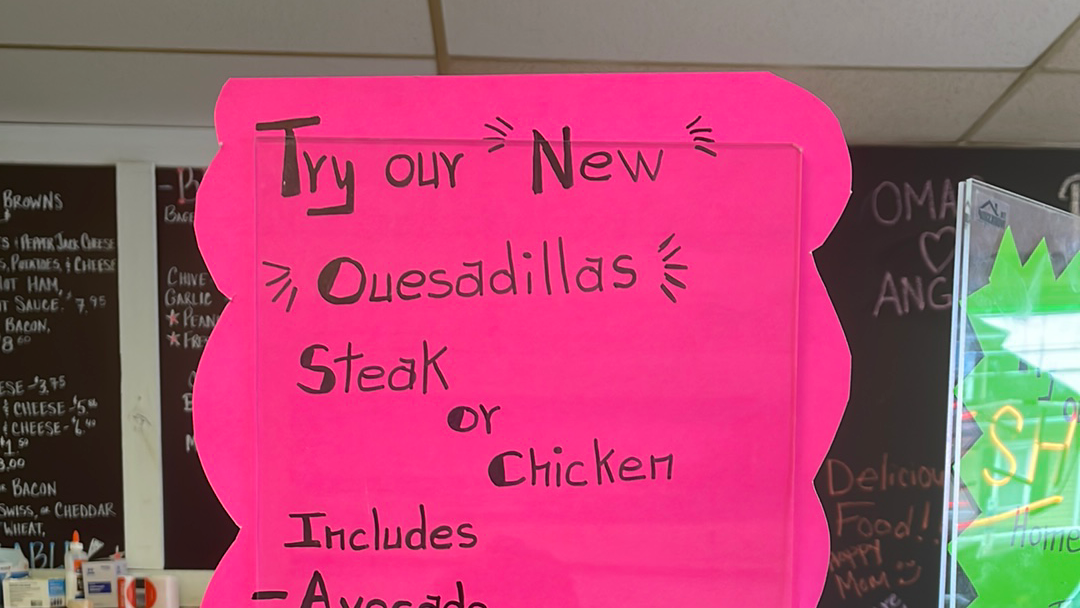 Try our New
Quesadillas
Steak
or
Chicken
Includes
- Avocado
BROWNS
&
PEPPER JACK CHEESE
POTATOES, & CHEESE
HAM,
SAUCE. 7.95
BACON,
8.00
-$3.75
& CHEESE-$5.
& CHEESE-$6.
$1.50
3.00
BACON
SWISS, or CHEDDAR
WHEAT,
CHIVE
GARLIC
OMA
ANG
Delicious
Food!!
Happy
Mom
SH
Home